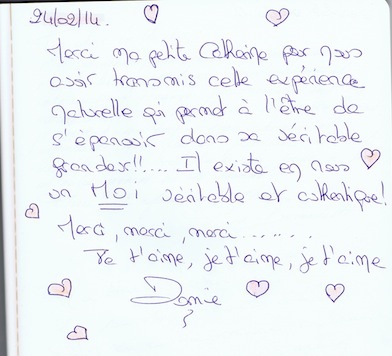 24/02/14.
Merci ma petite Catherine pour nous
avoir transmis cette expérience
naturelle qui permet à l'être de
s'épanouir dans sa véritable
grandeur!!.... Il existe en nous
un MOI véritable et authentique!
Merci, merci, merci........
Je t'aime, je t'aime, je t'aime
Danie